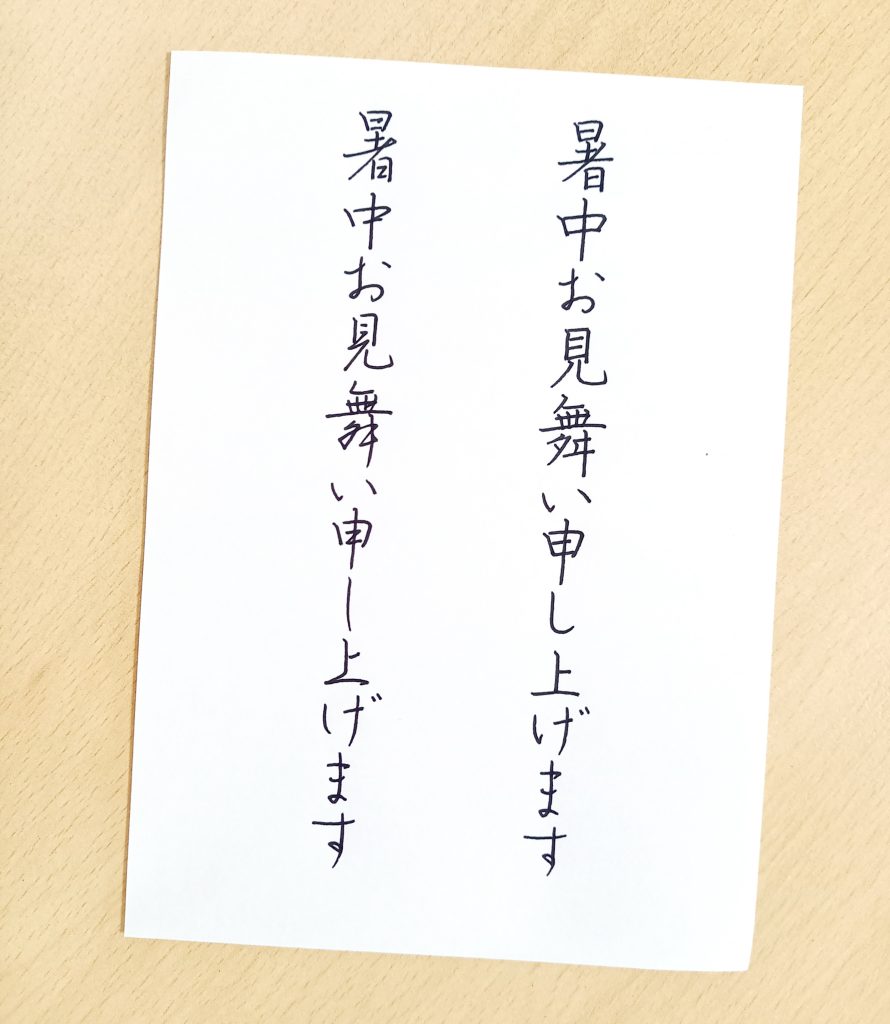 暑中お見舞い申し上げます
暑中お見舞い申し上げます